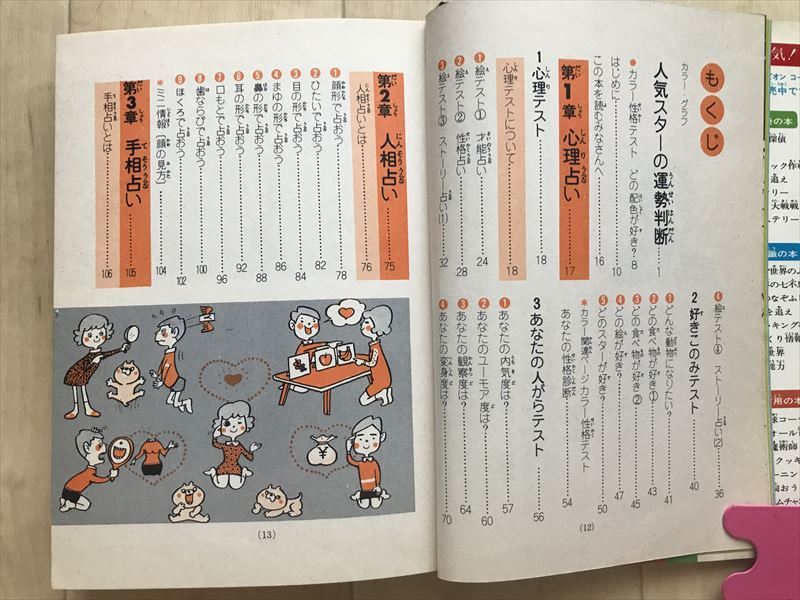 もくじ
カラー・グラフ
人気スターの運勢判断……1
●カラー性格テスト どの配色が好き?…8
はじめに……10
この本を読むみなさんへ……16
第1章 心理占い……17
心理テストについて……18
1 心理テスト……18
①絵テスト① 才能占い……24
②絵テスト② 性格占い……28
③絵テスト③ ストーリー占い(1)……32
④絵テスト④ ストーリー占い(2)……36
2 好きこのみテスト……40
①どんな動物になりたい?……41
②どの食べ物が好き①……43
③どの食べ物が好き②……45
④どの絵が好き?……47
⑤どのスターが好き?……50
*カラー関連ページ カラー性格テスト
あなたの性格診断……54
3 あなたの人がらテスト……56
①あなたの内気度は?……57
②あなたのユーモア度は?……60
③あなたの観察度は?……64
④あなたの変身度は?……70
(12)
第2章 人相占い……75
人相占いとは……76
①顔形で占おう……78
②ひたいで占おう……82
③目の形で占おう……84
④まゆの形で占おう……86
⑤鼻の形で占おう……88
⑥耳の形で占おう……92
⑦口もとで占おう……96
⑧歯ならびで占おう……100
⑨ほくろで占おう……102
*ミニ情報〔顔の見方〕……104
第3章 手相占い……105
手相占いとは……106
(13)